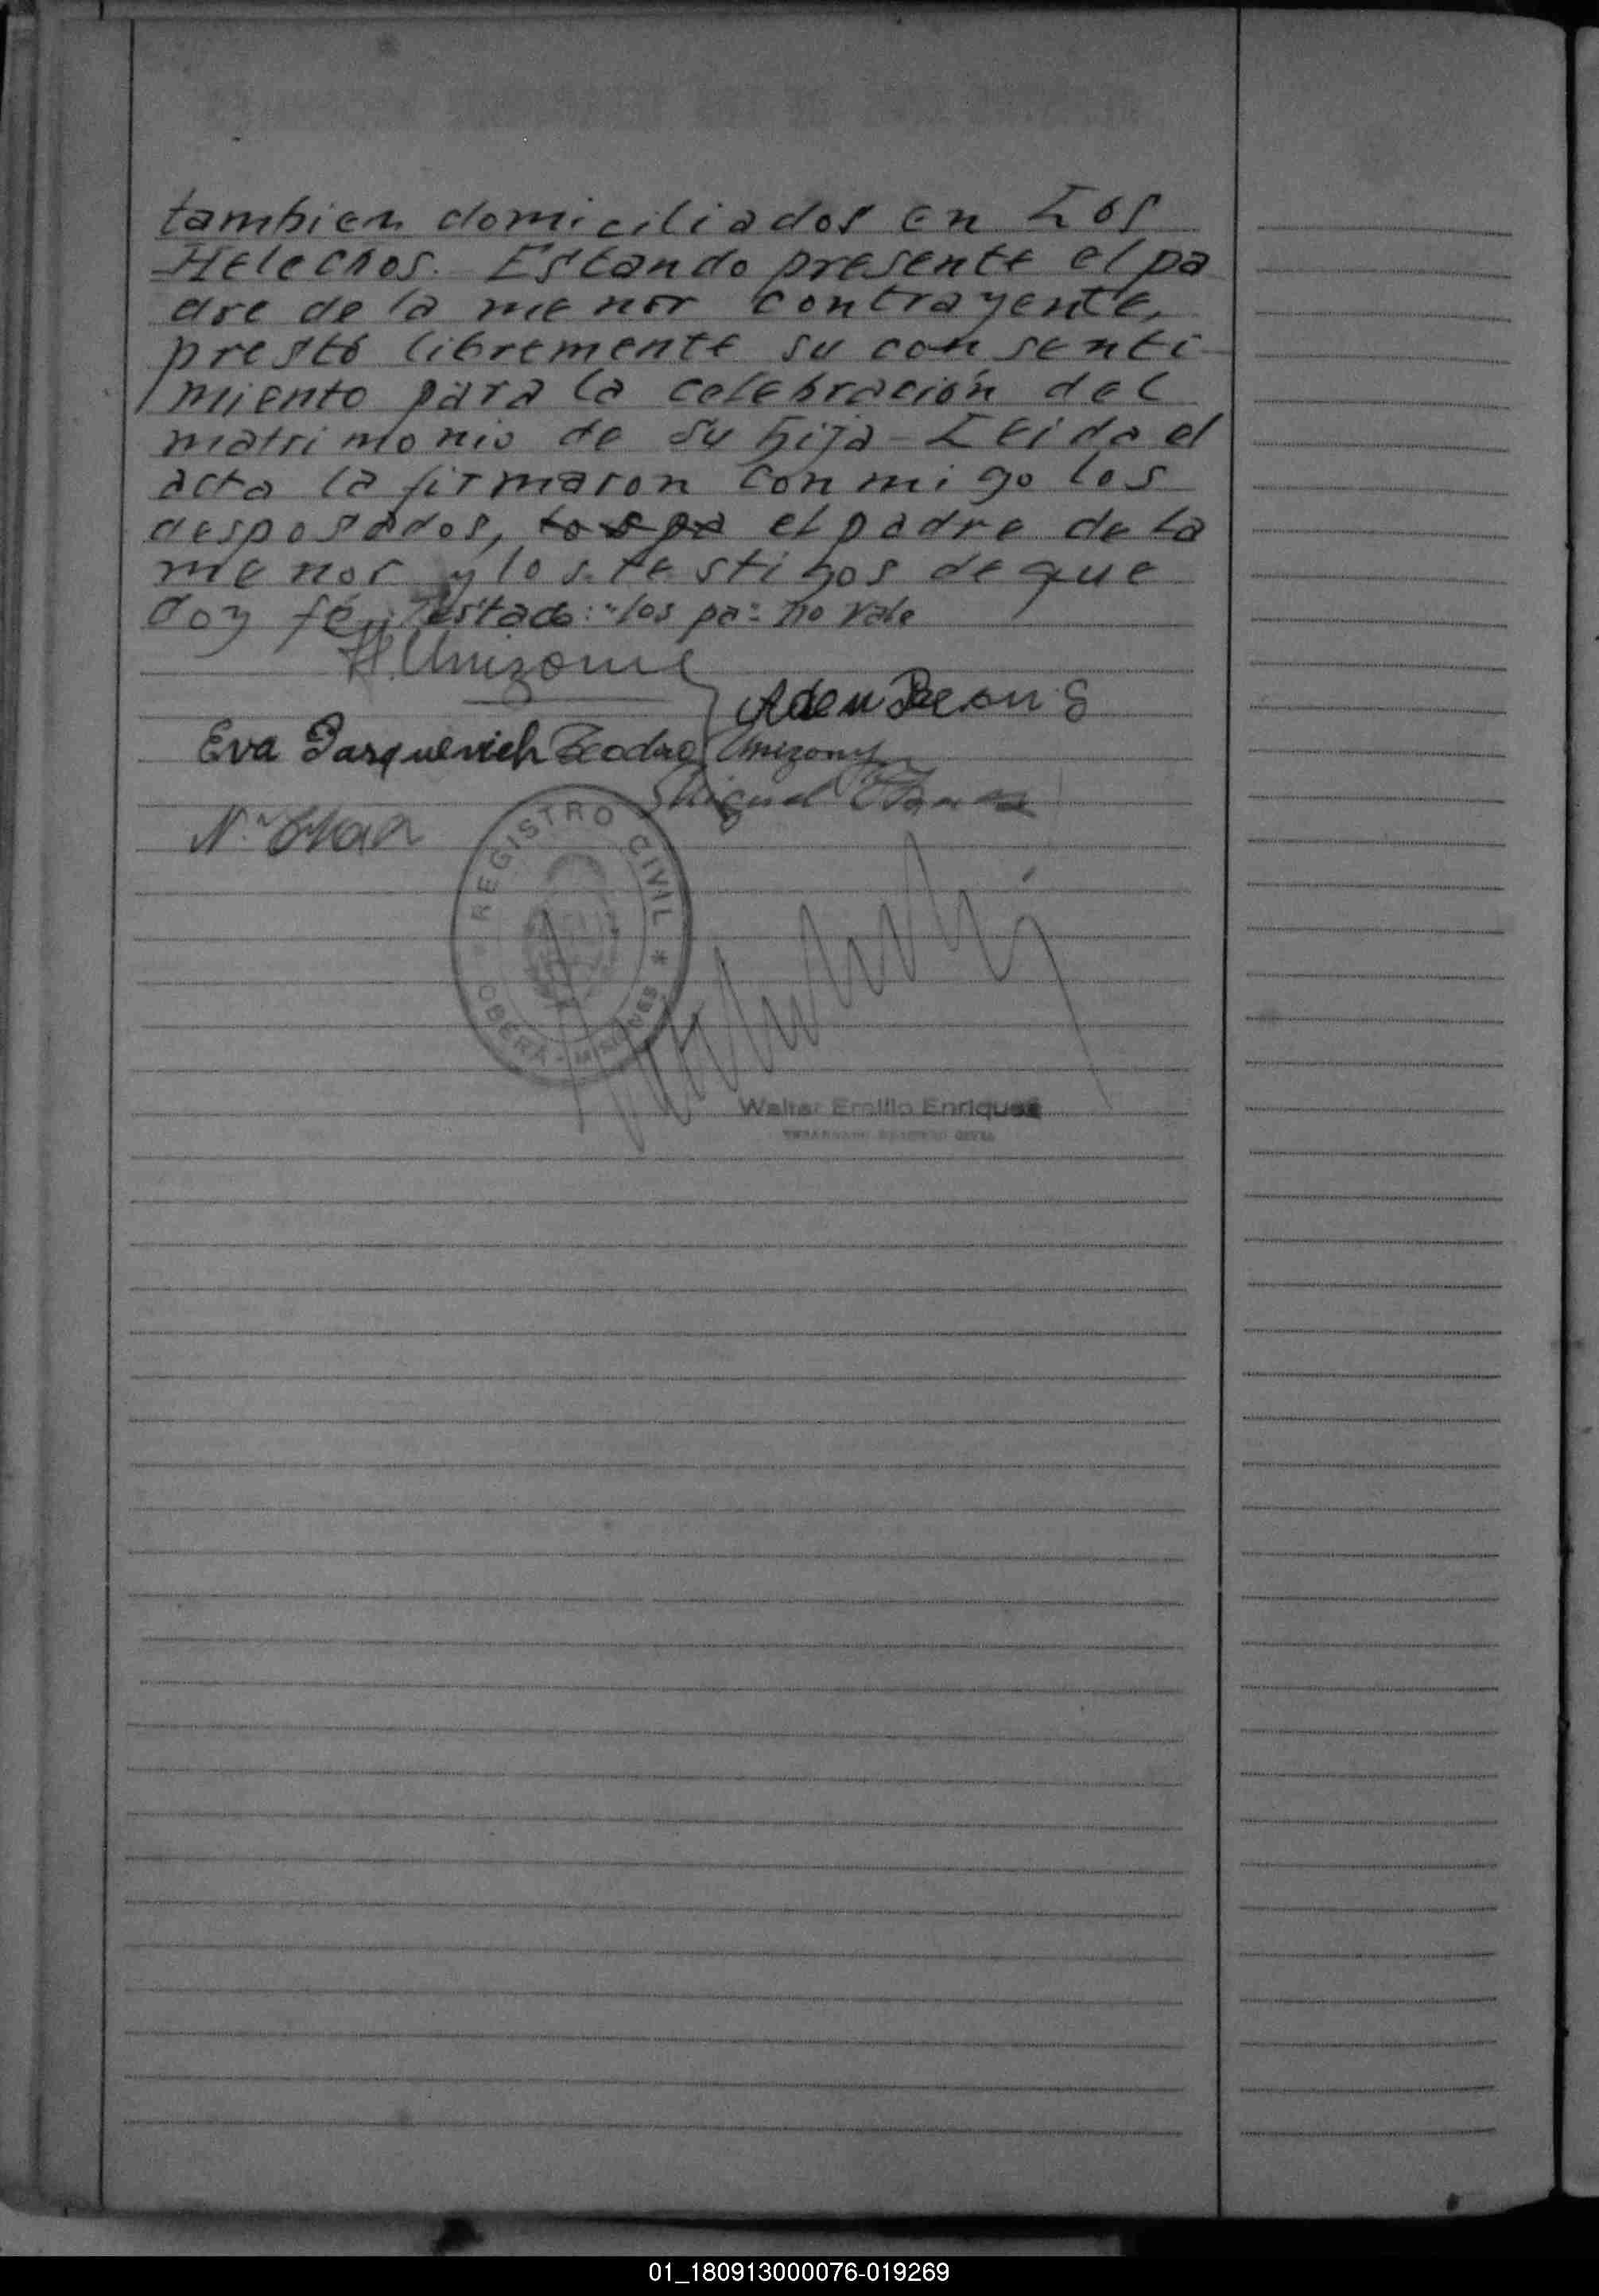 tambien domiciliados en Los
Helechos. Estando presente el pa
dre de la menor contrayente,
prestó libremente su consenti-
miento para la celebración del
matrimonio de su hija - Leida el
acta la firmaron conmigo los
desposados, los pa el padre de la
menor y los testigos de que
doy fé; Testado: "los pa" no vale
Eva Pasquevich Teodoro
Miguel
REGISTRO CIVIL
OBERÁ - MISIONES
Walter Emilio Enriquez
01_180913000076-019269